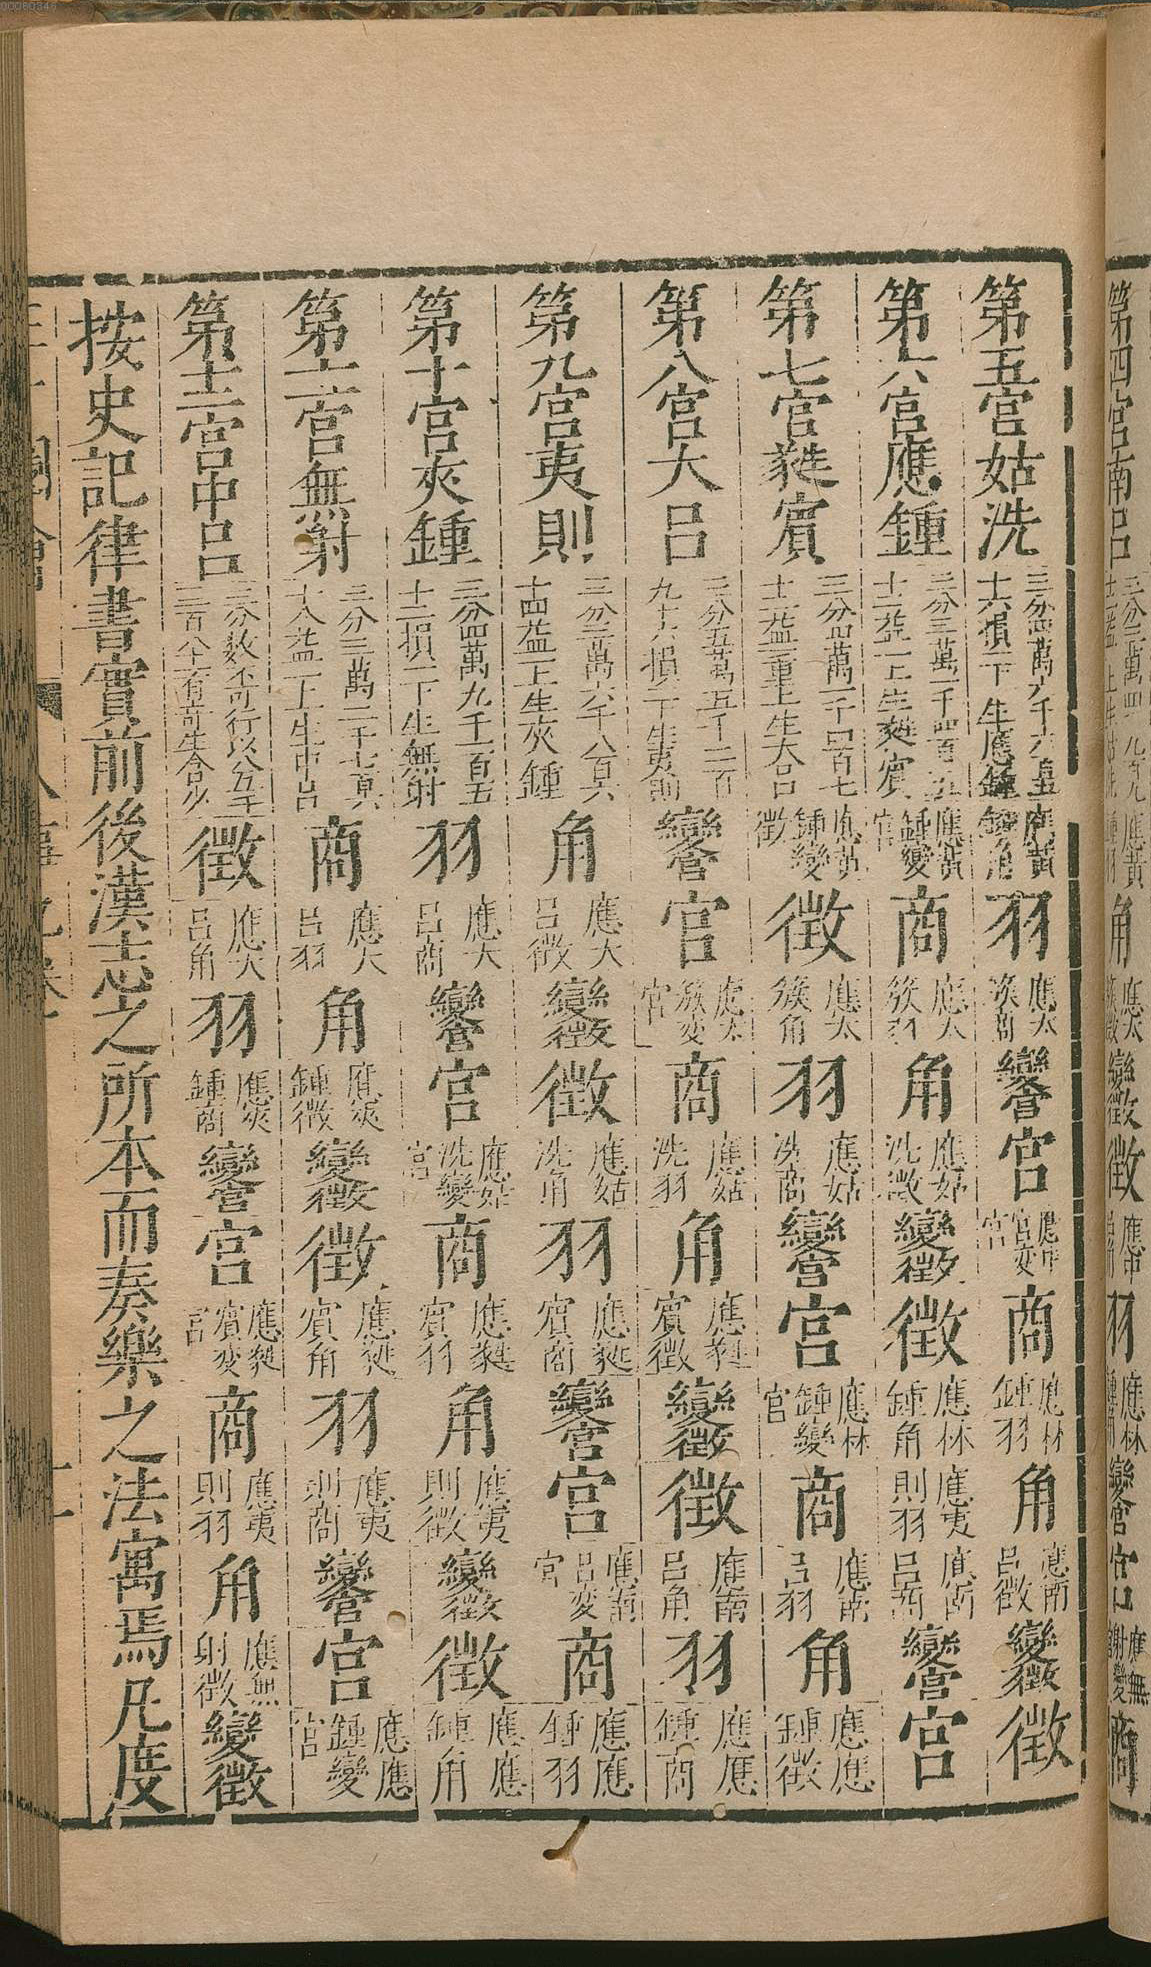 第五宮姑洗 三分四萬六千六百五十六損一下生應鍾 應黃鍾角 羽 應太簇商 變宮 宮 應中宮變宮 商 應林鍾羽 角 應南呂徵 變徵 徵
第六宮應鍾 三分三萬一千四百五十一益一上生蕤賓 應黃鍾變宮 商 應太簇羽 角 應姑洗徵 變徵 徵 應林鍾角 應夷則羽 應南呂商 變宮 宮
第七宮蕤賓 三分四萬一千四百七十二益一重上生大呂 應黃鍾變徵 徵 應太簇角 羽 應姑洗商 變宮 宮 應林鍾變宮 商 應南呂羽 角 應應鍾徵
第八宮大呂 三分五萬五千二百九十六損一下生夷則 變宮 宮 應太簇変宮 商 應姑洗羽 角 應蕤賓徵 變徵 徵 應南呂角 羽 應應鍾商
第九宮夷則 三分三萬六千八百六十四益一上生夾鍾 角 應大呂徵 變徵 徵 應姑洗角 羽 應蕤賓商 變宮 宮 應南呂変宮 商 應應鍾羽
第十宮夾鍾 三分四萬九千一百五十二損一下生無射 羽 應大呂商 變宮 宮 應姑洗變宮 商 應蕤賓羽 角 應夷則徵 變徵 徵 應應鍾角
第十一宮無射 三分三萬二千七百六十八益一上生中呂 商 應大呂羽 角 應夾鍾徵 變徵 徵 應蕤賓角 羽 應夷則商 變宮 宮 應應鍾變宮
第十二宮中呂 三分數不可行以八五千三百八十 徵 應大呂角 羽 應夾鍾商 變宮 宮 應蕤賓変宮 商 應夷則羽 角 應無射徵 變徵
按史記律書實前後漢志之所本而奏樂之法寓焉凡度